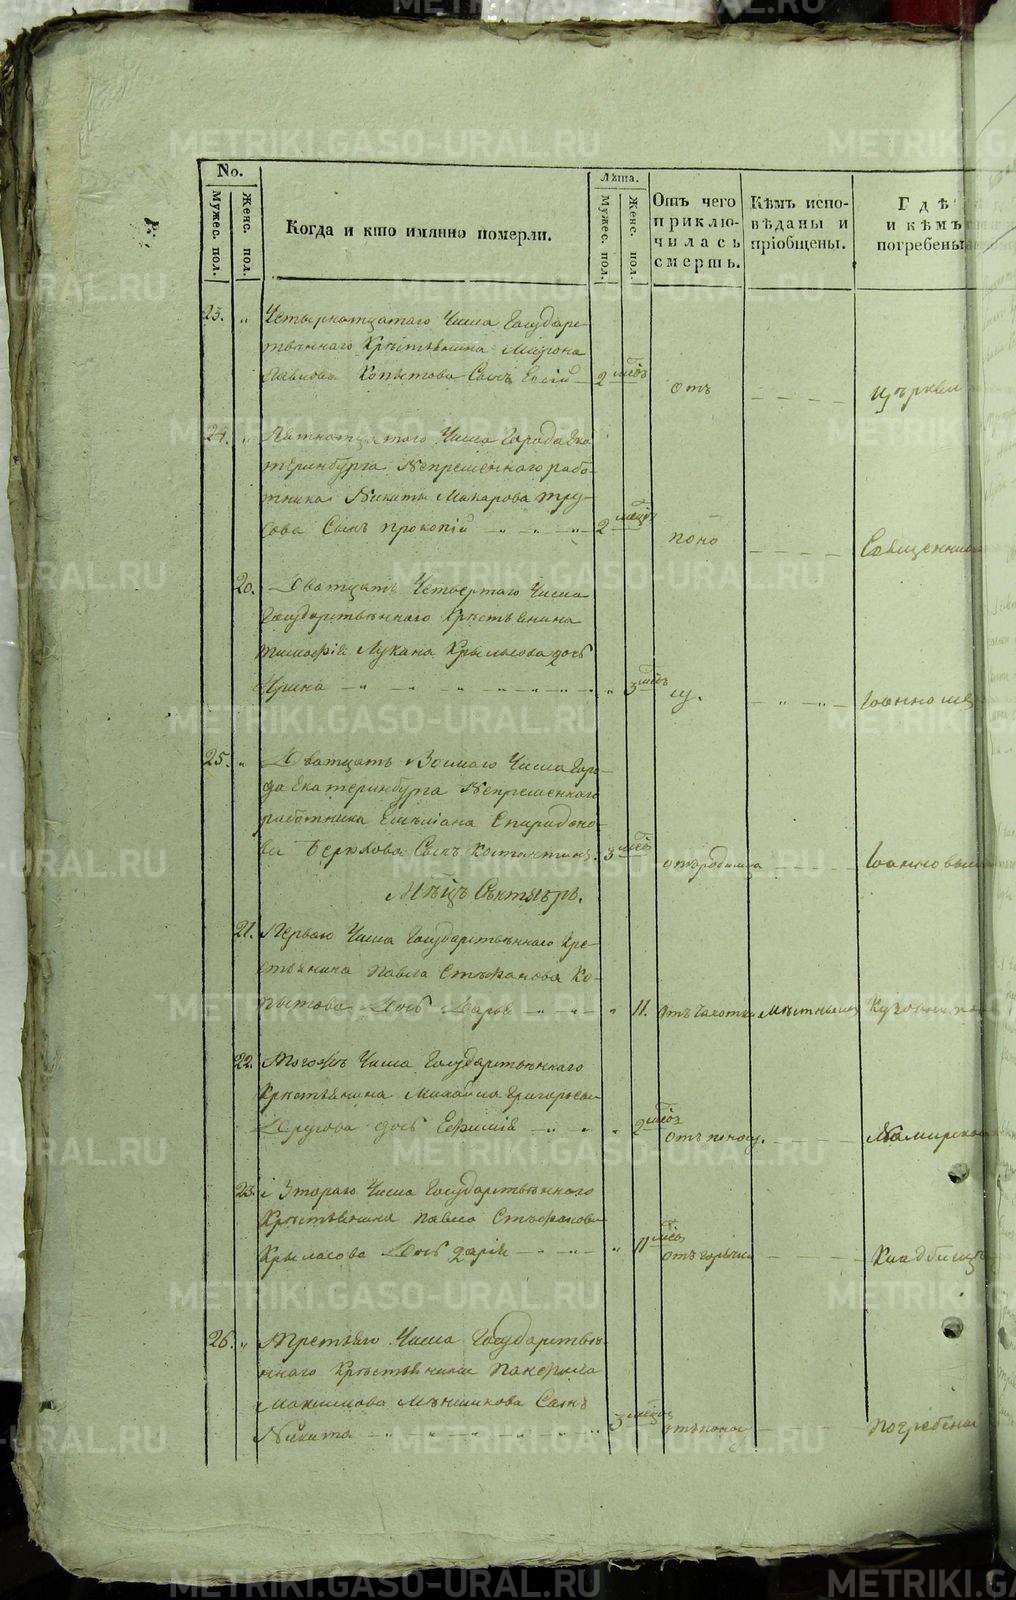 METRIKI.GASO-URAL.RU
No.
Мужес. пол.
Женс. пол.
Когда и кто имянно померли.
Лѣта.
Мужес. пол.
Женс. пол.
Отъ чего приклю-чилась смерть.
Кѣмъ испо-вѣданы и пріобщены.
Гдѣ и кѣмъ погребены
23. Четырнатцатаго Числа Государс-
твеннаго Крестьянина Мирона
Павлова Копытова Сынъ 2 месѣ
отъ
церкви
24. Пятнатцатого Числа Города Ека
теринбурга Непременнаго рабо-
тника Никиты Макарова тру-
сова Сынъ прокопій 2 месец
поно
Священник
20. Дватцать Четвертаго Числа
Государственнаго Крестьянина
Лукина Крыласова дочь
Ирина 3 месѣ
су.
Іоанном
25. Дватцать Числа Горо-
да Екатеринбурга Непременнаго
работника Емельяна Спиридоно-
ва Сынъ Костантинъ. 3 месѣ
отъ родимца
Іоанновым
Мѣцъ Октябрь.
21. Перваго Числа Государственнаго Кре-
стьянина Павла Стефанова Ко-
пытова Дочь Дарья 11.
отъ чахотки
местнымъ
22. Числа Государственнаго
Крестьянина Михайла Григорьева
Другова дочь Ефимія 2 месѣ
отъ поносу.
23. Втораго Числа Государственнаго
Крестьянина Павла Стефанова
Крыласова Дочь дарія 11 месѣ
отъ горячки
Кладбищѣ
26. Третьяго Числа Государстве-
ннаго Крестьянина Панфила
Максимова Меншикова Сынъ
Никита 3 месец
отъ понос
погребены